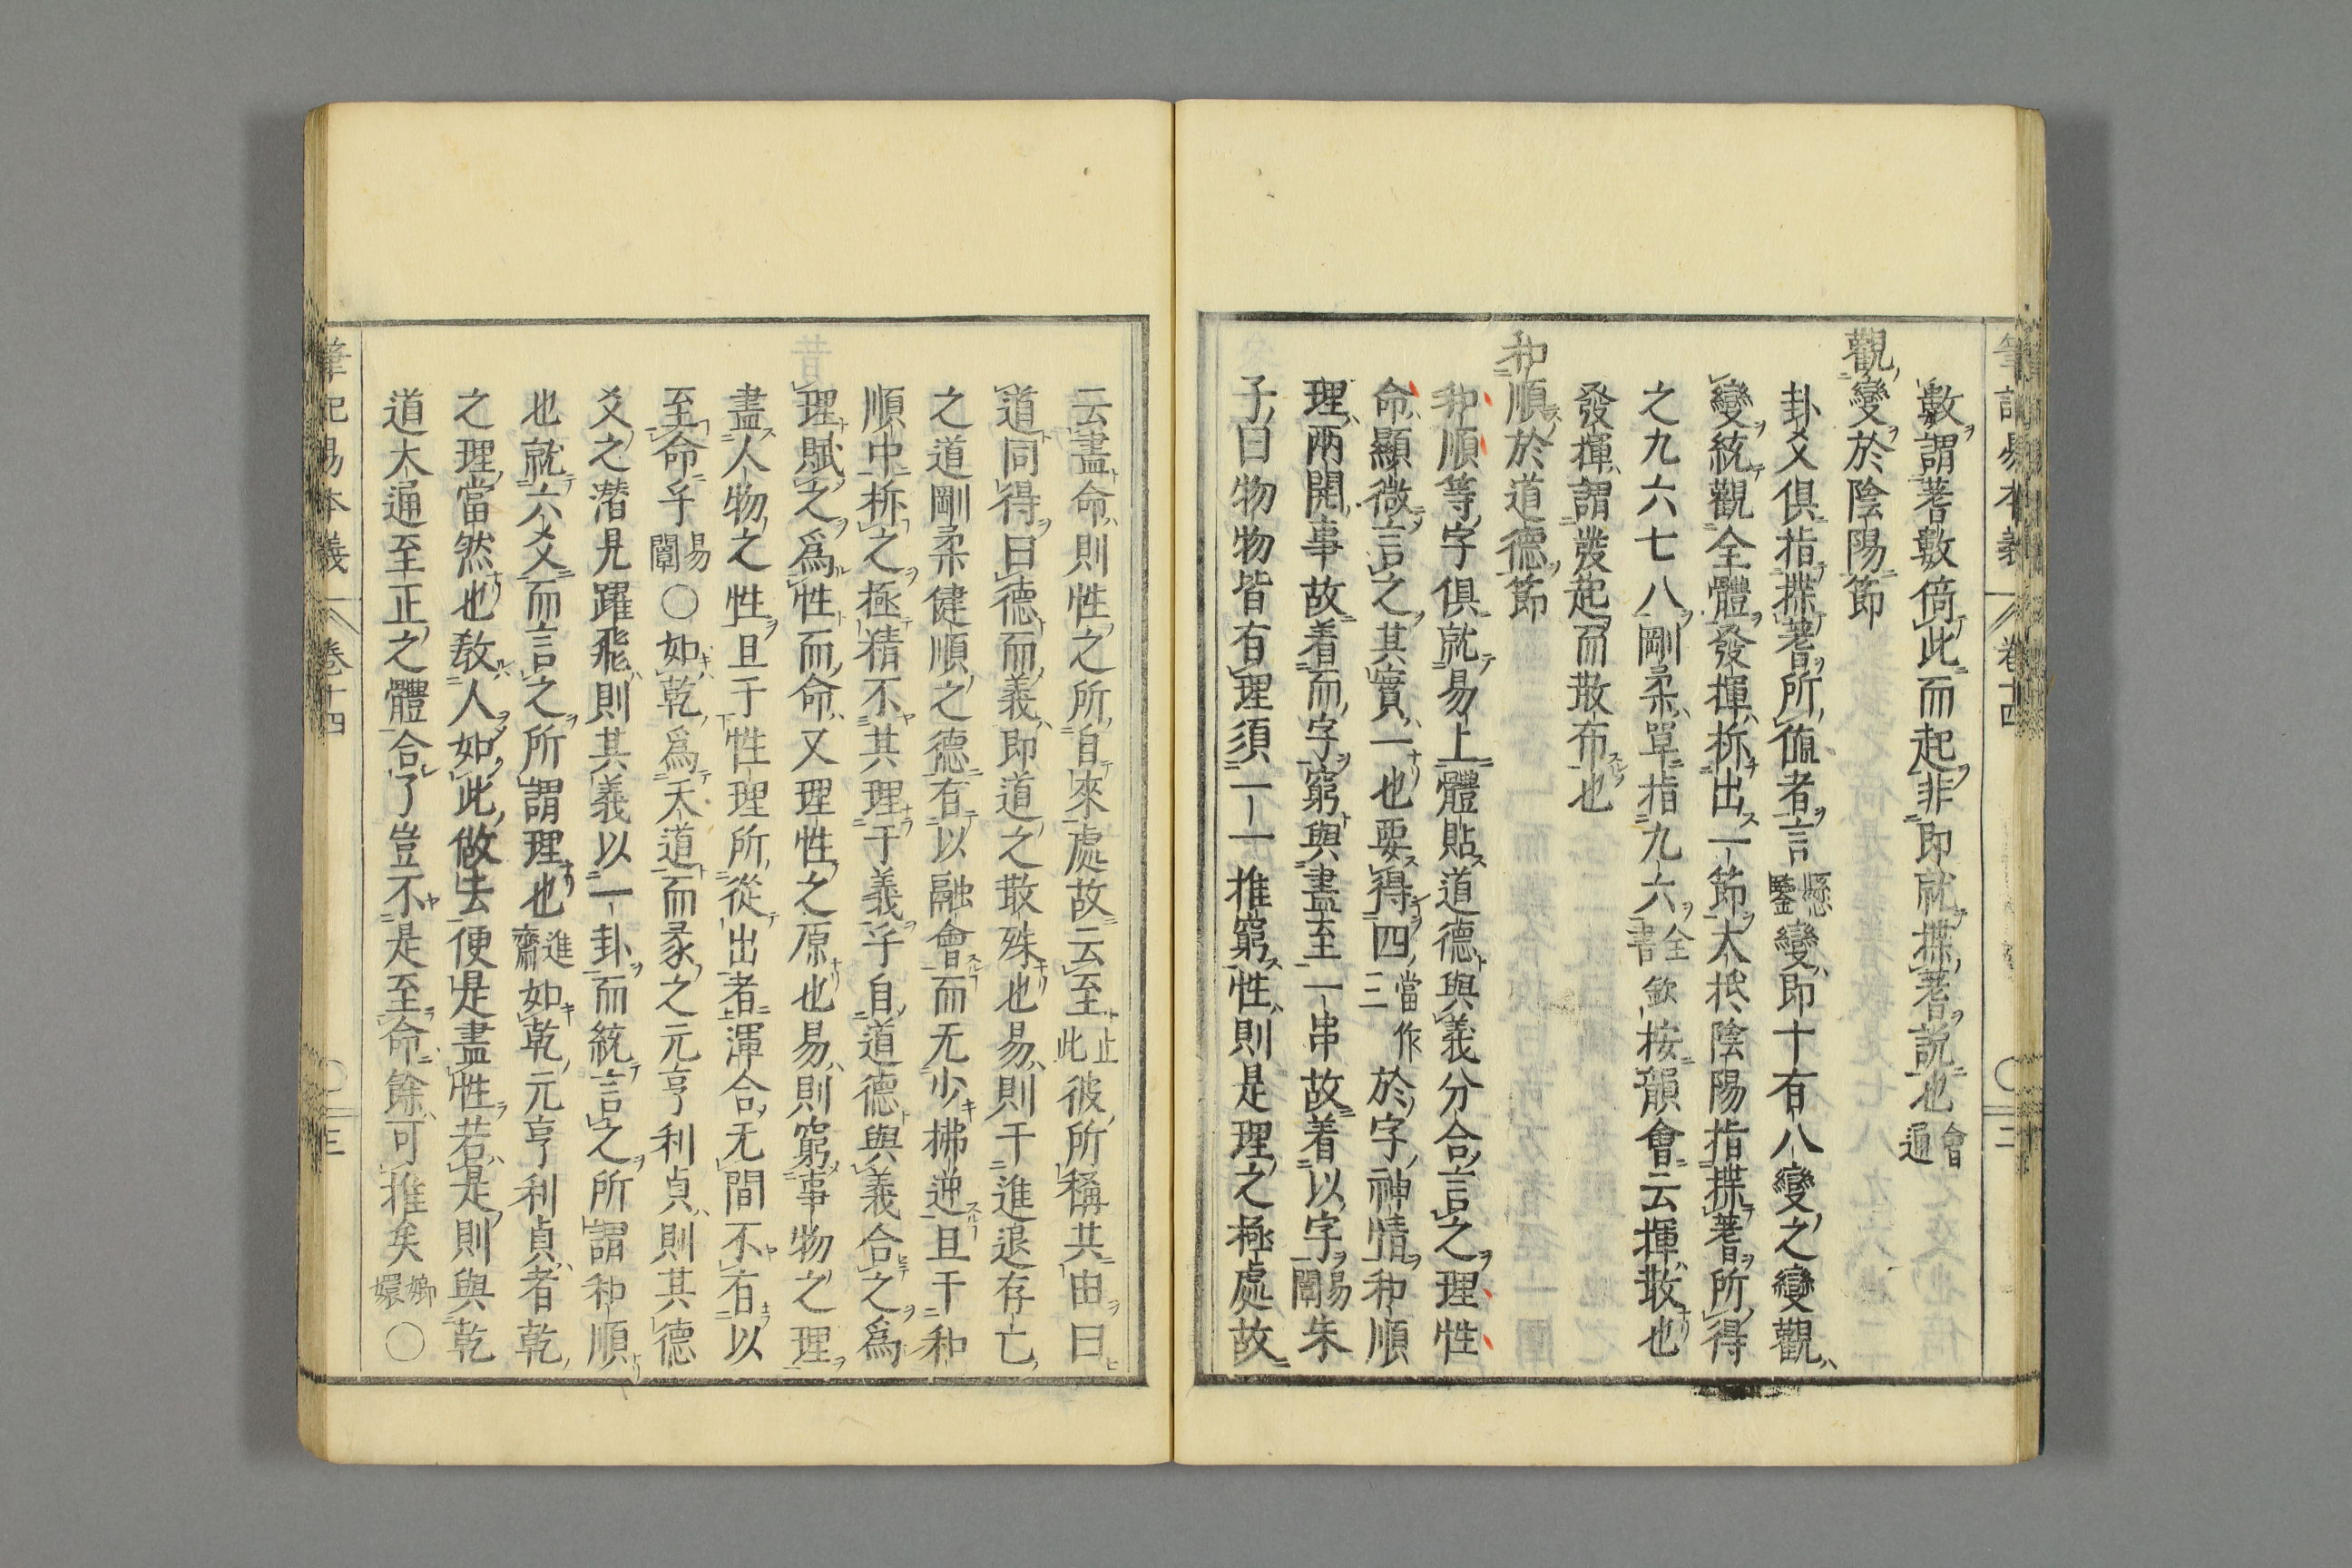 數謂蓍數倚此而起非即就揲蓍説也會通
觀變於陰陽節
卦爻俱指揲蓍所値者言懸鑒變即十有八變之變觀
變統觀全體發揮拆出一節太抵陰陽指揲蓍所得
之九六七八剛柔單指九六全書欽按韻會云揮散也
發揮謂發起而散布也
和順於道德節
和順等字俱就易上體貼道德與義分合言之理性
命顯微言之其實一也要得四當作三於字神情和順
理兩開事故着而字窮與盡至一串故着以字易闡朱
子曰物物皆有理須一一推窮性則是理之極處故
云盡命則性之所自來處故云至止此彼所稱其由曰
道同得曰德而義即道之散殊也易則干進退存亡
之道剛柔健順之德有以融會而无少拂逆且干和
順中拆之極精不其理于義乎自道德與義合之爲
理賦之爲性而命又理性之原也易則窮事物之理
盡人物之性且于性理所從出者渾合无間不有以
至命乎易闡〇如乾爲天道而彖之元亨利貞則其德
爻之潛見躍飛則其義以一卦而統言之所謂和順
也就六爻而言之所謂理也進齋如乾元亨利貞者乾
之理當然也教人如此做去便是盡性若是則與乾
道太通至正之體合了豈不是至命餘可推矣嫏嬛〇
筆記易本義 卷十四 三